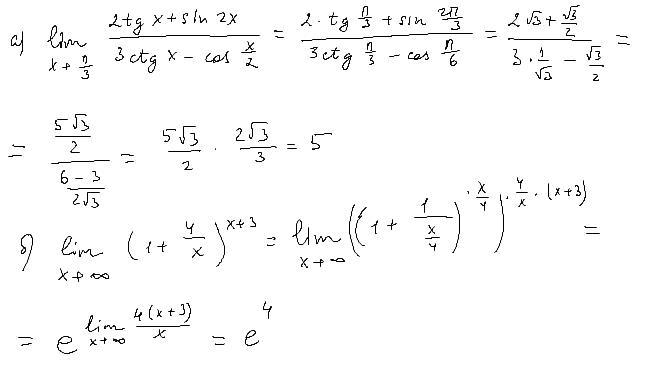 а) lim x→π/3 (2tg x + sin 2x)/(3ctg x − cos x/2) = (2·tg π/3 + sin 2π/3)/(3ctg π/3 − cos π/6) = (2√3 + √3/2)/(3·1/√3 − √3/2) =
= (5√3/2)/((6−3)/(2√3)) = 5√3/2 · 2√3/3 = 5
б) lim x→∞ (1 + 4/x)^(x+3) = lim x→∞ ((1 + 1/(x/4))^(·x/4))^(·4/x·(x+3)) =
= e^(lim x→∞ 4(x+3)/x) = e^4